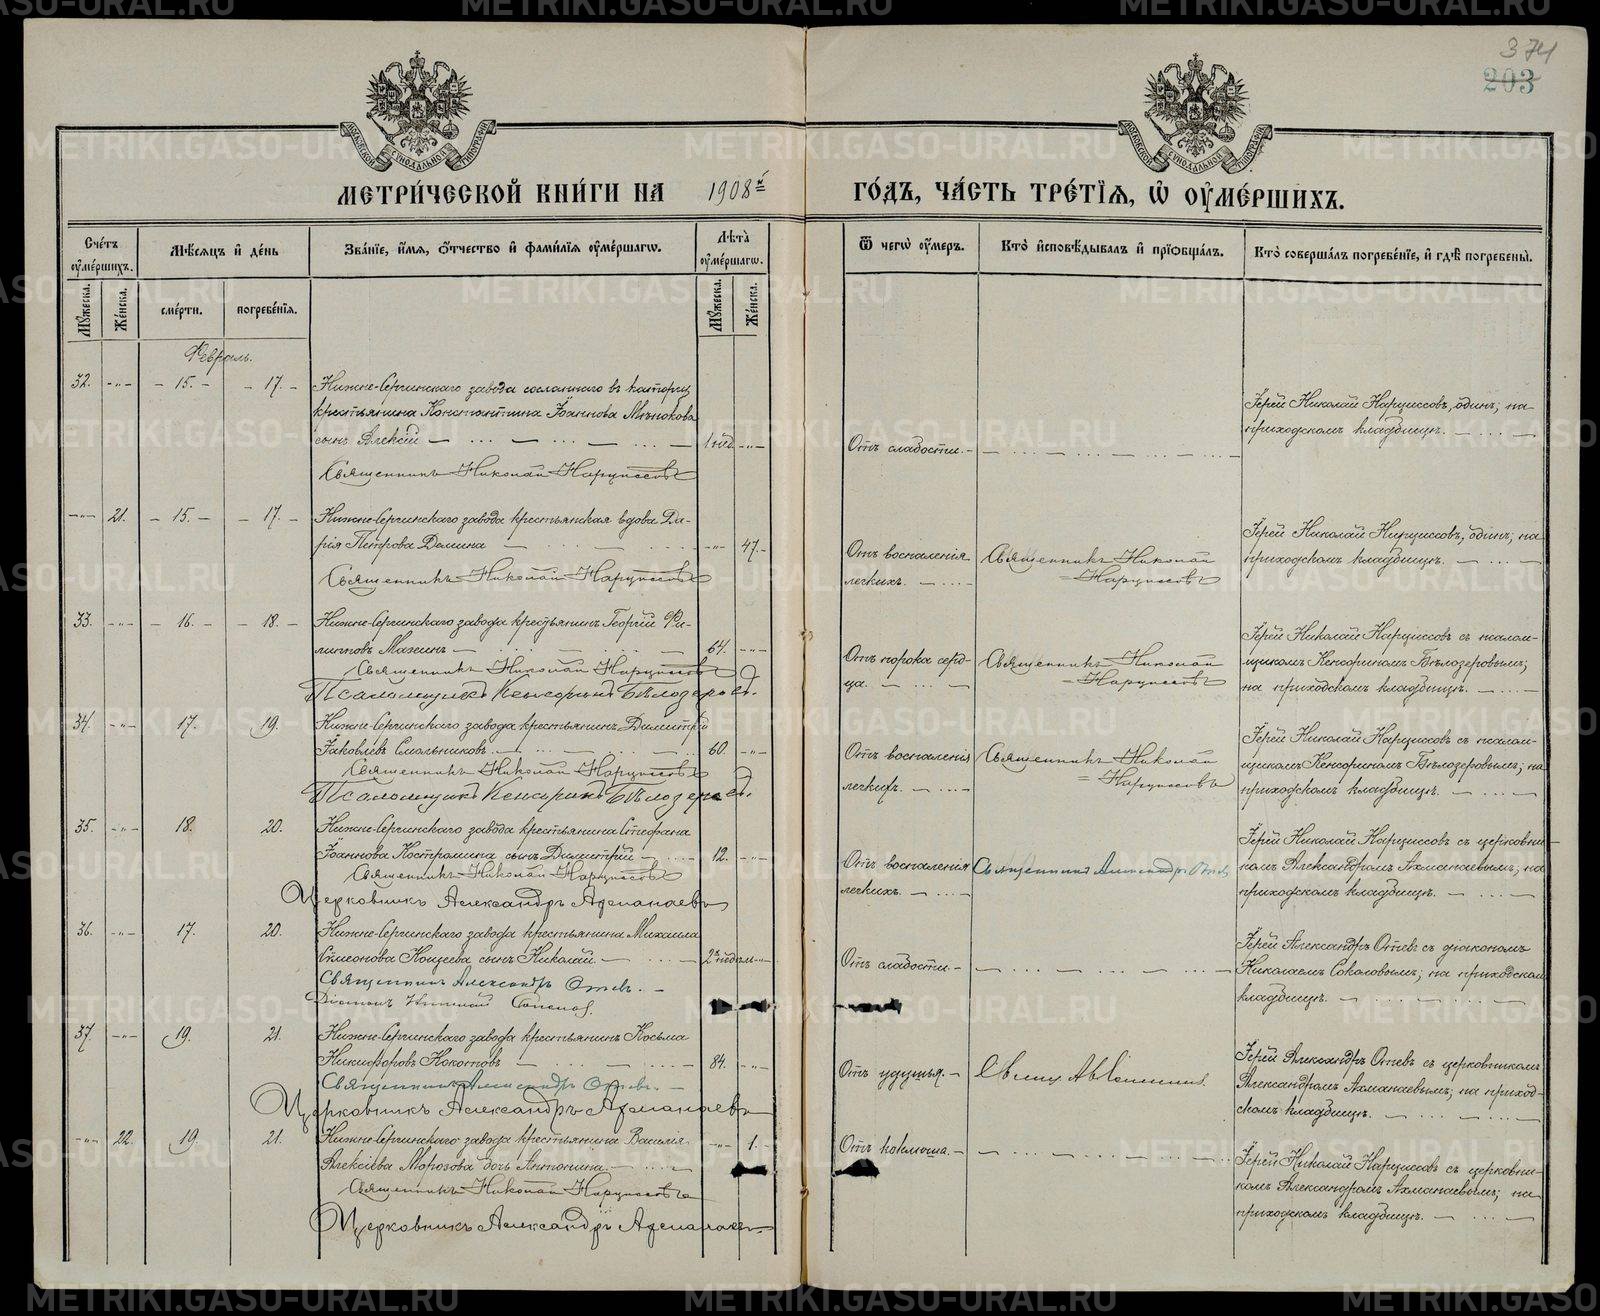 374
203
МОСКОВСКОЙ СѴНОДАЛЬНОЙ ТИПОГРАФІИ
МОСКОВСКОЙ СѴНОДАЛЬНОЙ ТИПОГРАФІИ
МЕТРИ́ЧЕСКОЙ КНИ́ГИ НА 1908й ГО́ДЪ, ЧА́СТЬ ТРЕ́ТІѦ, Ѡ҆ ОУ҆МЕ́РШИХЪ.
Сче́тъ оу҆ме́ршихъ.
Мꙋжеска.
Же́нска.
Мѣ́сѧцъ и҆ де́нь
сме́рти.
погребе́нїѧ.
Зва́нїе, и҆́мѧ, ѻ҆́тчество и҆ фами́лїѧ оу҆ме́ршагѡ.
Лѣ́та оу҆ме́ршагѡ.
Мꙋжеска.
Же́нска.
Ѿ чегѡ̀ оу҆́меръ.
Кто̀ и҆сповѣ́дывалъ и҆ прїѡбща́лъ.
Кто̀ соверша́лъ погребе́нїе, и҆ гдѣ̀ погребены̀.
Февраль.
32. -"- - 15. - - 17. -
Нижне-Сергинскаго завода сосланнаго въ каторгу
крестьянина Константина Іоаннова
сынъ Алексій — 1 нед. -"-
Священникъ Николай Нарциссовъ
Отъ слабости. —
Іерей Николай Нарциссовъ, одинъ; на
приходскомъ кладбищѣ. —
-"- 21. - 15. - - 17. -
Нижне-Сергинскаго завода крестьянская вдова Да-
рія Петрова Демина — -"- 47. -
Священникъ Николай Нарциссовъ
Отъ воспаленія
легкихъ. —
Священникъ Николай
Нарциссовъ
Іерей Николай Нарциссовъ, одинъ; на
приходскомъ кладбищѣ. —
33. -"- - 16. - - 18. -
Нижне-Сергинскаго завода крестьянинъ Георгій Фи-
липповъ Мажинъ — 64. -"-
Священникъ Николай Нарциссовъ
Псаломщикъ Кенсоринъ Бѣлозеровъ.
Отъ порока серд-
ца. —
Священникъ Николай
Нарциссовъ
Іерей Николай Нарциссовъ съ псалом-
щикомъ Кенсориномъ Бѣлозеровымъ;
на приходскомъ кладбищѣ. —
34. -"- 17. 19.
Нижне-Сергинскаго завода крестьянинъ Димитрій
Іаковлевъ Смольниковъ. — 60. -"-
Священникъ Николай Нарциссовъ
Псаломщикъ Кенсоринъ Бѣлозеровъ.
Отъ воспаленія
легкихъ. —
Священникъ Николай
Нарциссовъ
Іерей Николай Нарциссовъ съ псалом-
щикомъ Кенсориномъ Бѣлозеровымъ; на
приходскомъ кладбищѣ. —
35. -"- 18. 20.
Нижне-Сергинскаго завода крестьянина Стефана
Іоаннова Костромина сынъ Димитрій — 12. -"-
Священникъ Николай Нарциссовъ
Церковникъ Александръ Ахманаевъ
Отъ воспаленія
легкихъ. —
Священникъ Александръ Отевъ
Іерей Николай Нарциссовъ съ церковни-
комъ Александромъ Ахманаевымъ; на
приходскомъ кладбищѣ. —
36. -"- 17. 20.
Нижне-Сергинскаго завода крестьянина Михаила
Симеонова Кощеева сынъ Николай. — 2хъ недѣль -"-
Священникъ Александръ Отевъ. —
Діаконъ Николай Соколов.
Отъ слабости. —
Іерей Александръ Отевъ съ діакономъ
Николаемъ Соколовымъ; на приходскомъ
кладбищѣ. —
37. -"- 19. 21.
Нижне-Сергинскаго завода крестьянинъ Косьма
Никифоровъ Кокотовъ — 84. -"-
Священникъ Александръ Отевъ. —
Церковникъ Александръ Ахманаевъ
Отъ удушья. —
Іерей Александръ Отевъ съ церковникомъ
Александромъ Ахманаевымъ; на приход-
скомъ кладбищѣ. —
-"- 22. 19. 21.
Нижне-Сергинскаго завода крестьянина Василія
Алексіева Морозова дочь Антонина. — -"- 1.
Священникъ Николай Нарциссовъ
Церковникъ Александръ Ахманаевъ
Отъ коклюша. —
Іерей Николай Нарциссовъ съ церковни-
комъ Александромъ Ахманаевымъ; на
приходскомъ кладбищѣ. —
METRIKI.GASO-URAL.RU